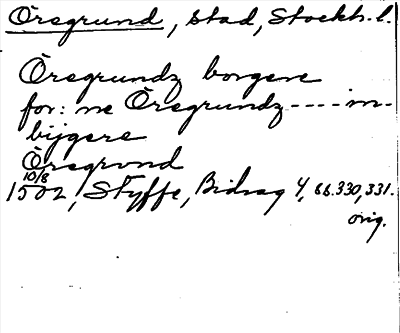 Öresgrund, stad, Stockh. l.
Öresgrundz borgere
for: ne Öresgrundz ---- in-
bijgere
Öresgrvnd
10/8
1502, Styffe, Bidrag 4, ss. 330, 331.
orig.